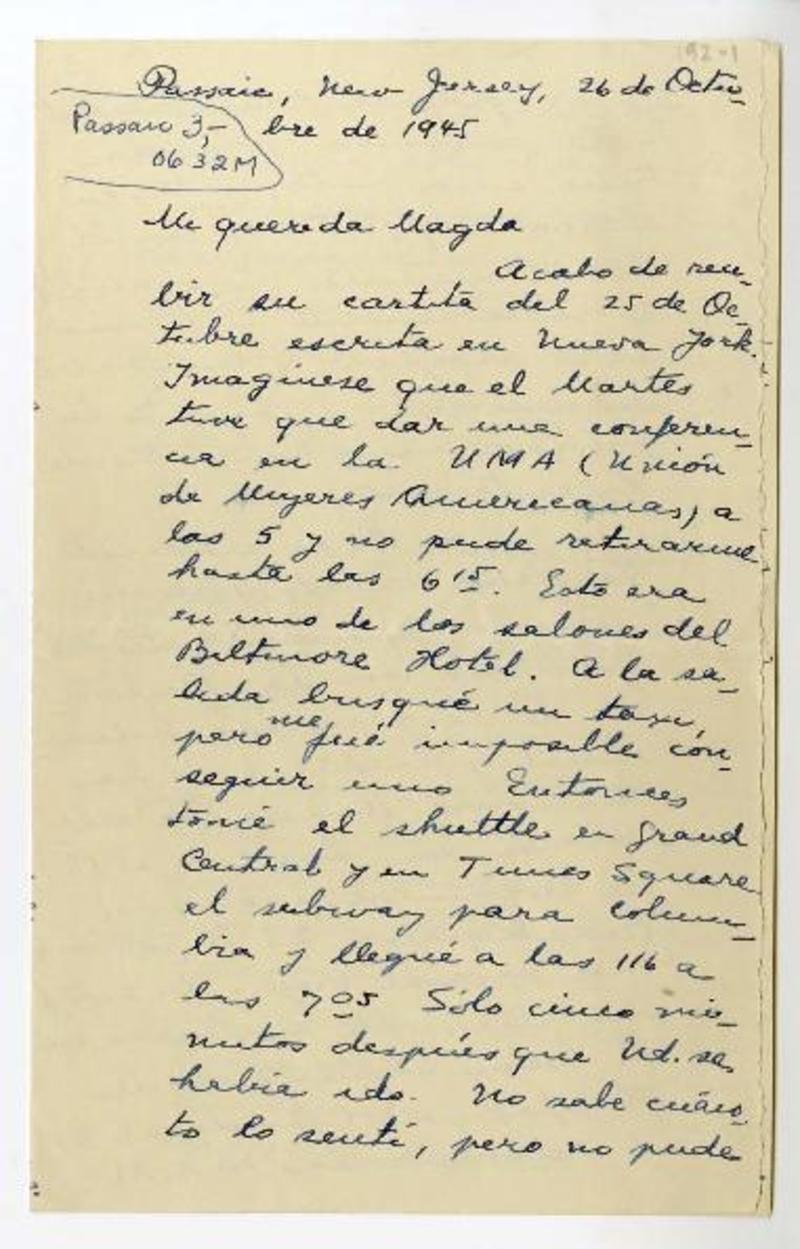 192-1
Passaic, New Jersey, 26 de Octu-
bre de 1945
Passaic 3,-
0632M
Mi querida Magda
Acabo de reci-
bir su cartita del 25 de Oc-
tubre escrita en Nueva York.
Imagínese que el Martes
tuve que dar una conferen-
cia en la UMA (Unión
de Mujeres Americanas) a
las 5 y no pude retirarme
hasta las 6 15. Esto era
en uno de los salones del
Biltmore Hotel. A la sa-
lida busqué un taxi,
pero me fué imposible con-
seguir uno Entonces
tomé el shuttle en Grand
Central y en Times Square
el subway para Colum-
bia y llegué a las 116 a
las 7 05 Sólo cinco mi-
nutos después que Ud. se
había ido. No sabe cuán-
to lo sentí, pero no pude